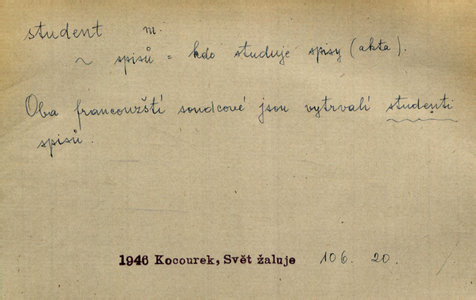 student m.
~ spisů = kdo studuje spisy (akta).
Oba francouzští soudcové jsou vytrvalí studenti
spisů.
1946 Kocourek, Svět žaluje 106. 20.